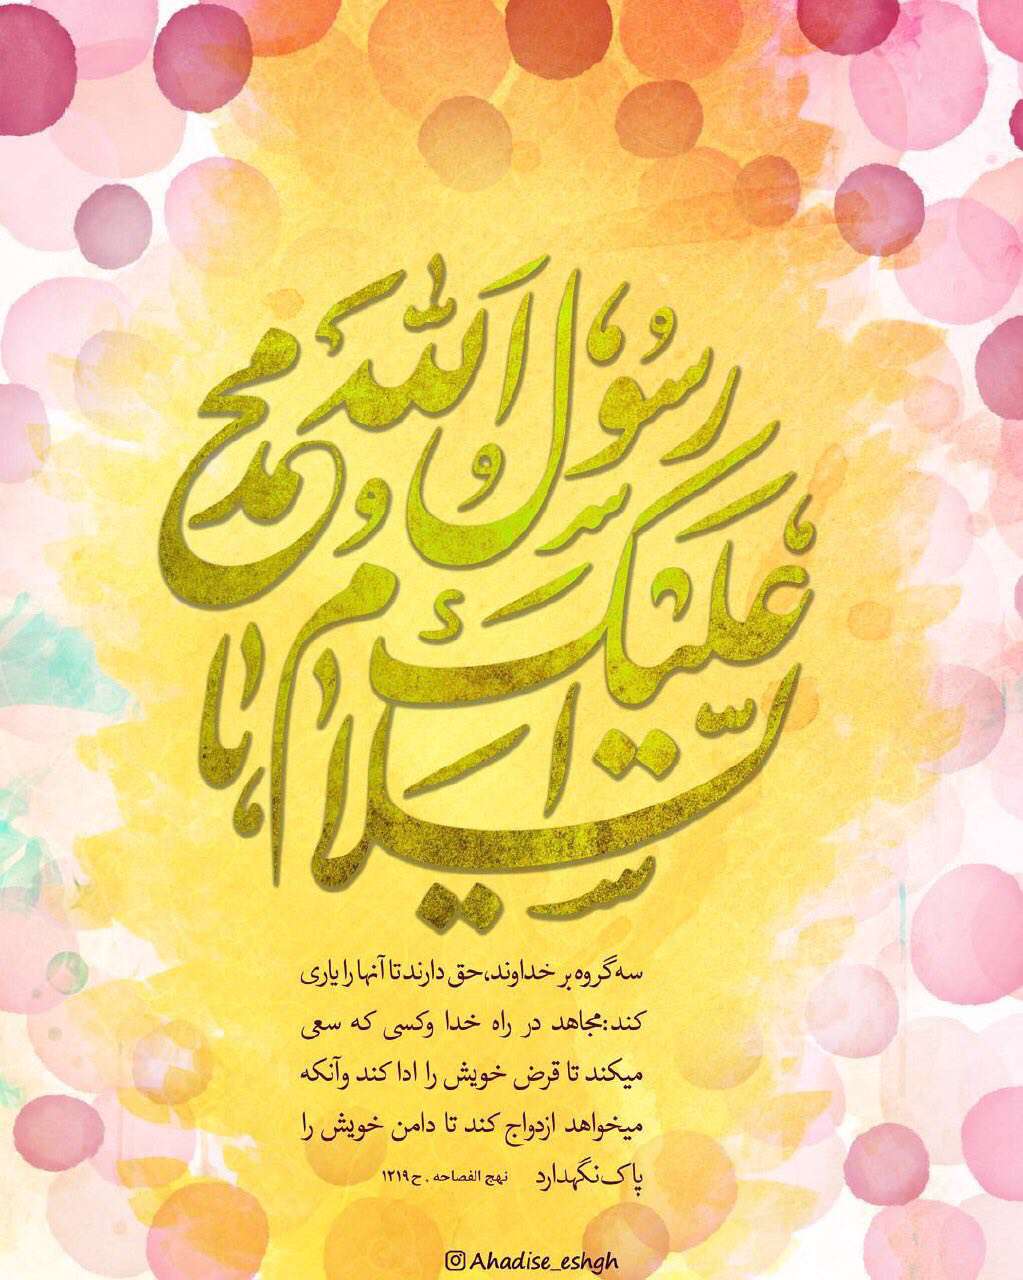 السلام علیک یا
رسول الله محمد
سه گروه بر خداوند،حق دارند تا آنها را یاری
کند:مجاهد در راه خدا وکسی که سعی
میکند تا قرض خویش را ادا کند وآنکه
میخواهد ازدواج کند تا دامن خویش را
پاک نگهدارد نهج الفصاحه . ح ۱۲۱۹
Ahadise_eshgh